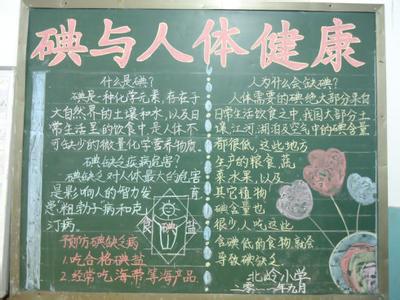 碘与人体健康
什么是碘?
碘是一种化学元素,存在于
大自然界的土壤和水,以及日
常生活里的饮食中,是人体不
可缺少的微量化学营养物质.
碘缺乏疾病危害?
碘缺乏对人体最大的危害
是影响人的智力发育
患"粗勃子"病和克
汀病.
食碘盐
预防碘缺乏病
1.吃合格碘盐
2.经常吃海带等海产品.
人为什么会缺碘?
人体需要的碘绝大部分来自
日常生活饮食之中,我国大部分土
壤江河、湖泊及空气中的碘含量
都很低,这些地方
生产的粮食、蔬
菜水果,以及
其它植物
碘含量也
很少,人吃这些
含碘低的食物,就会
导致碘缺乏
北岭小学
二〇一一年九月